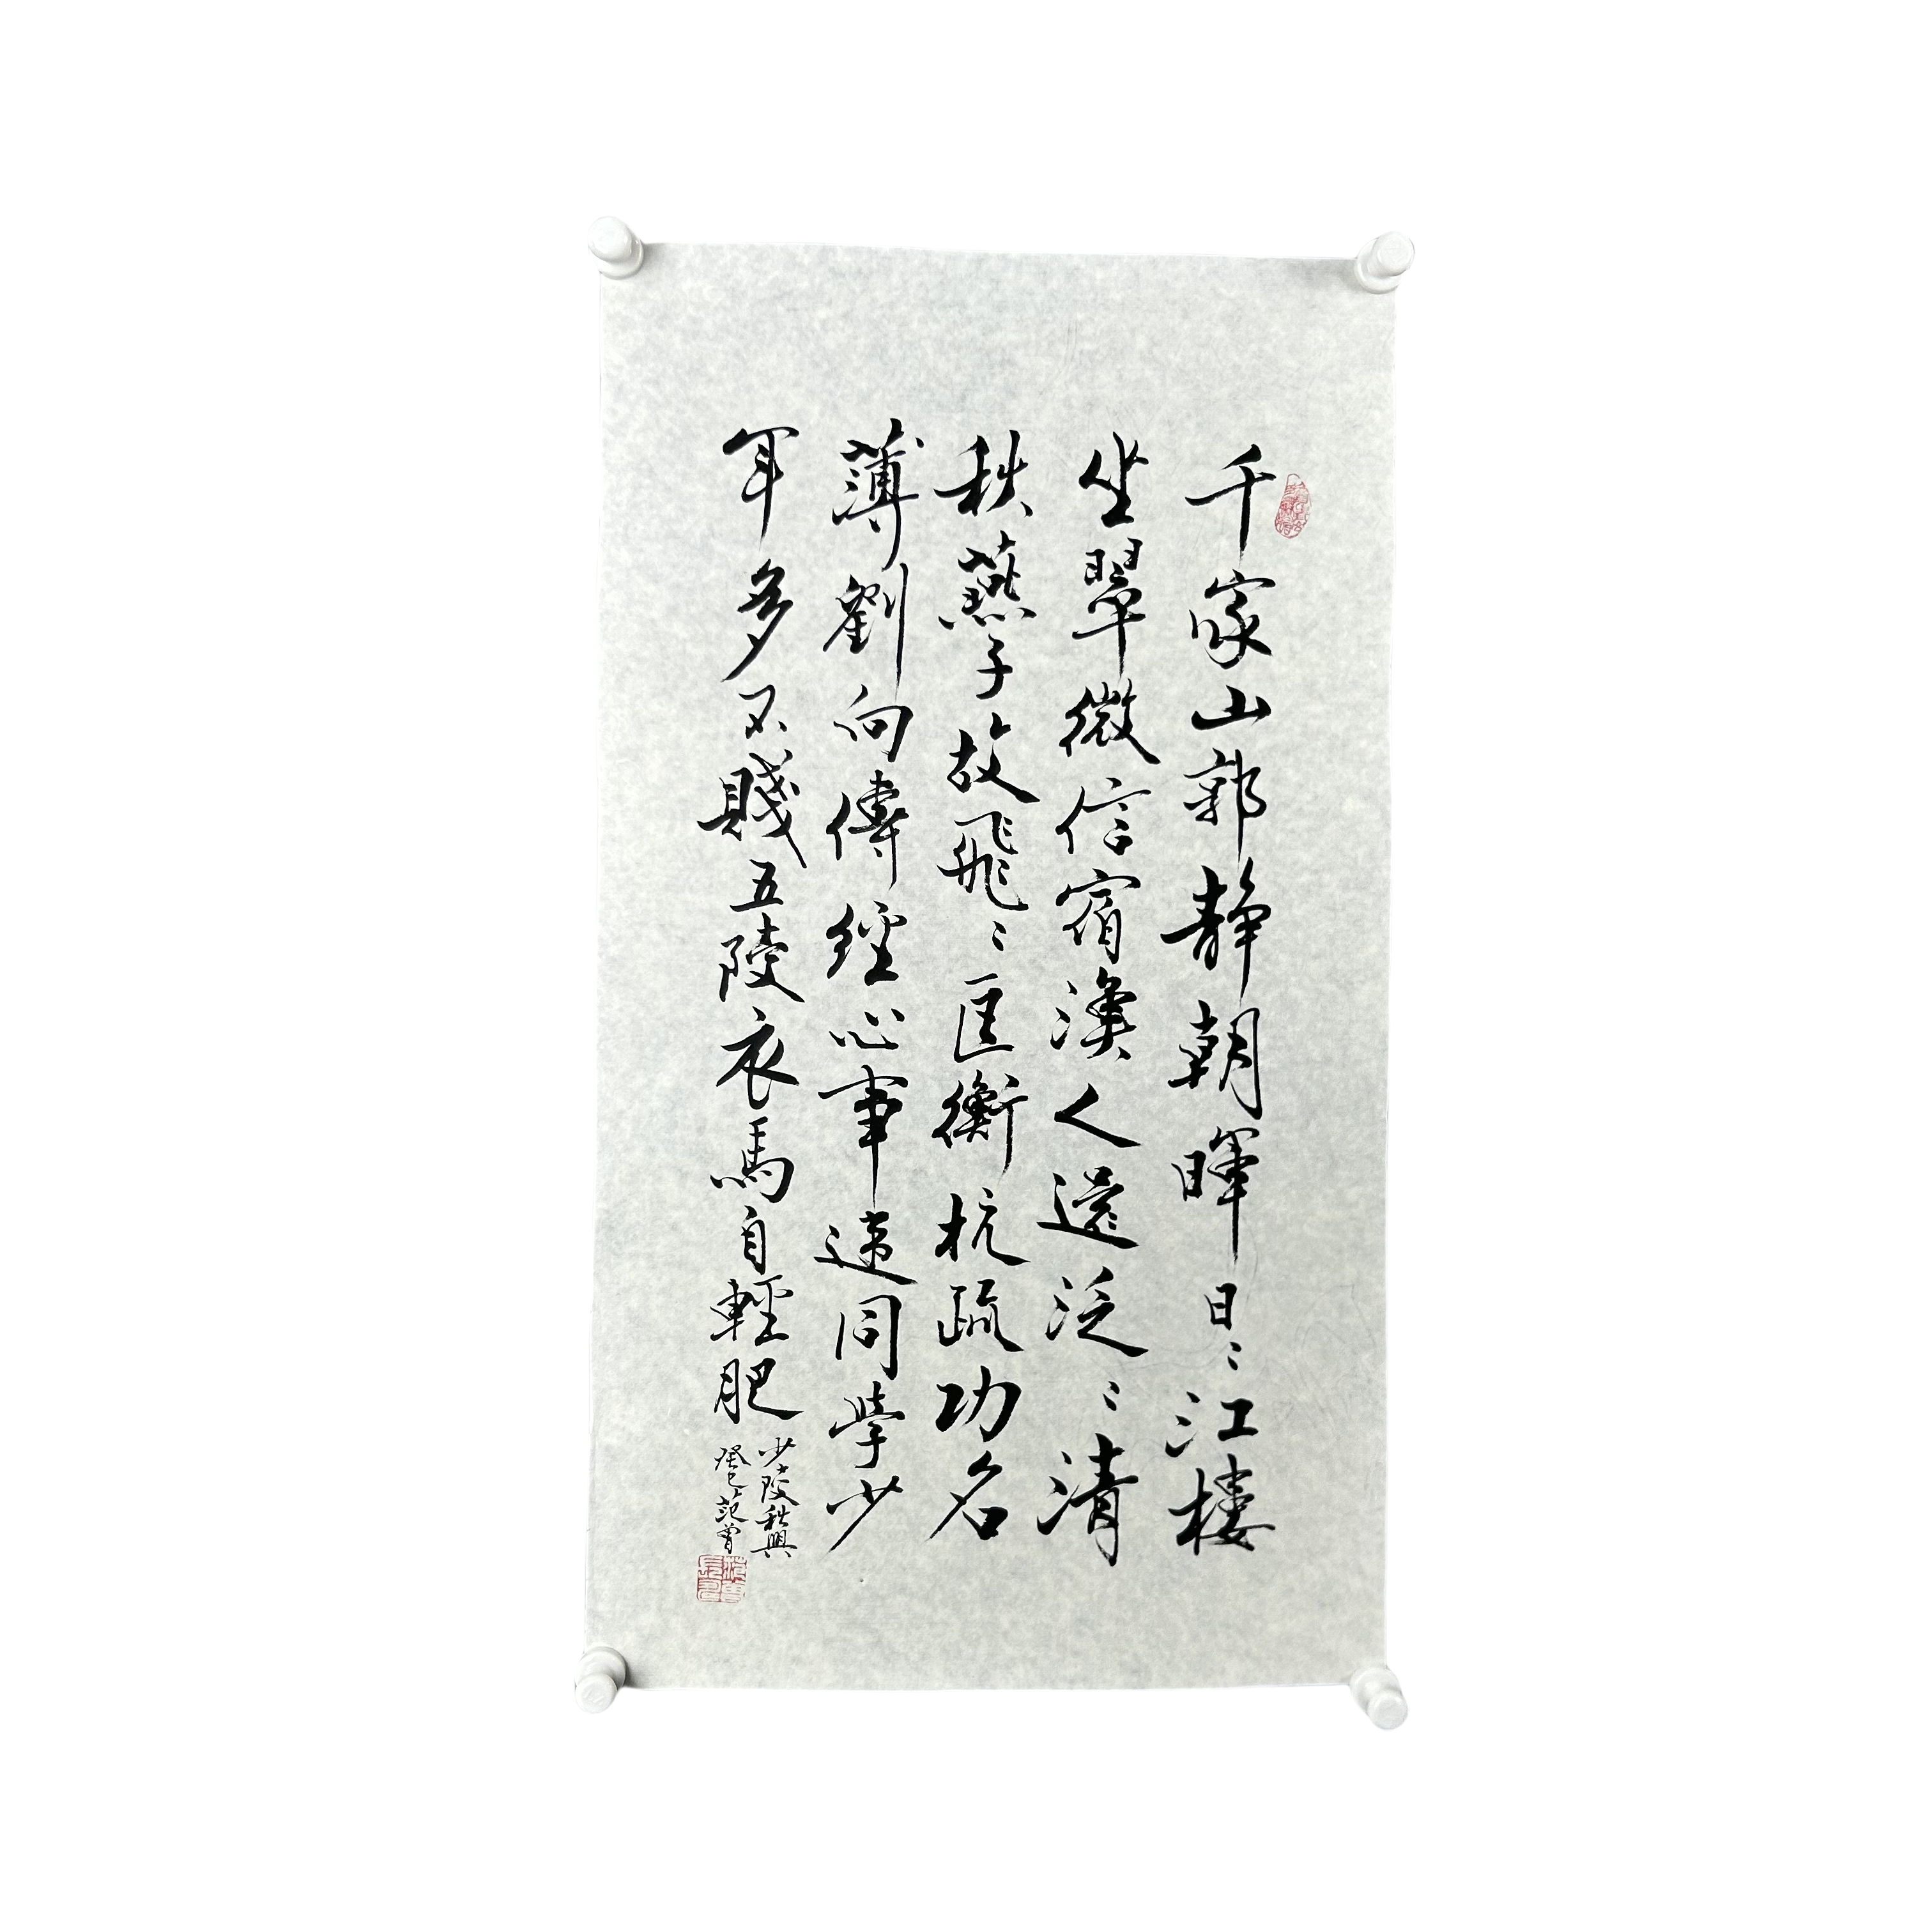 千家山郭静朝暉日〻江樓
坐翠微信宿漁人還泛〻清
秋燕子故飛〻匡衡抗疏功名
薄劉向傳經心事違同學少
年多不賤五陵衣馬自輕肥
少陵秋興
癸巳范曾